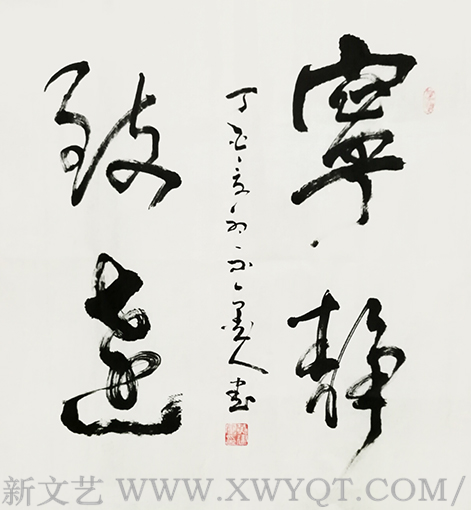 寧靜
致遠
丁酉
人書
新文艺 WWW.XWYQT.COM/